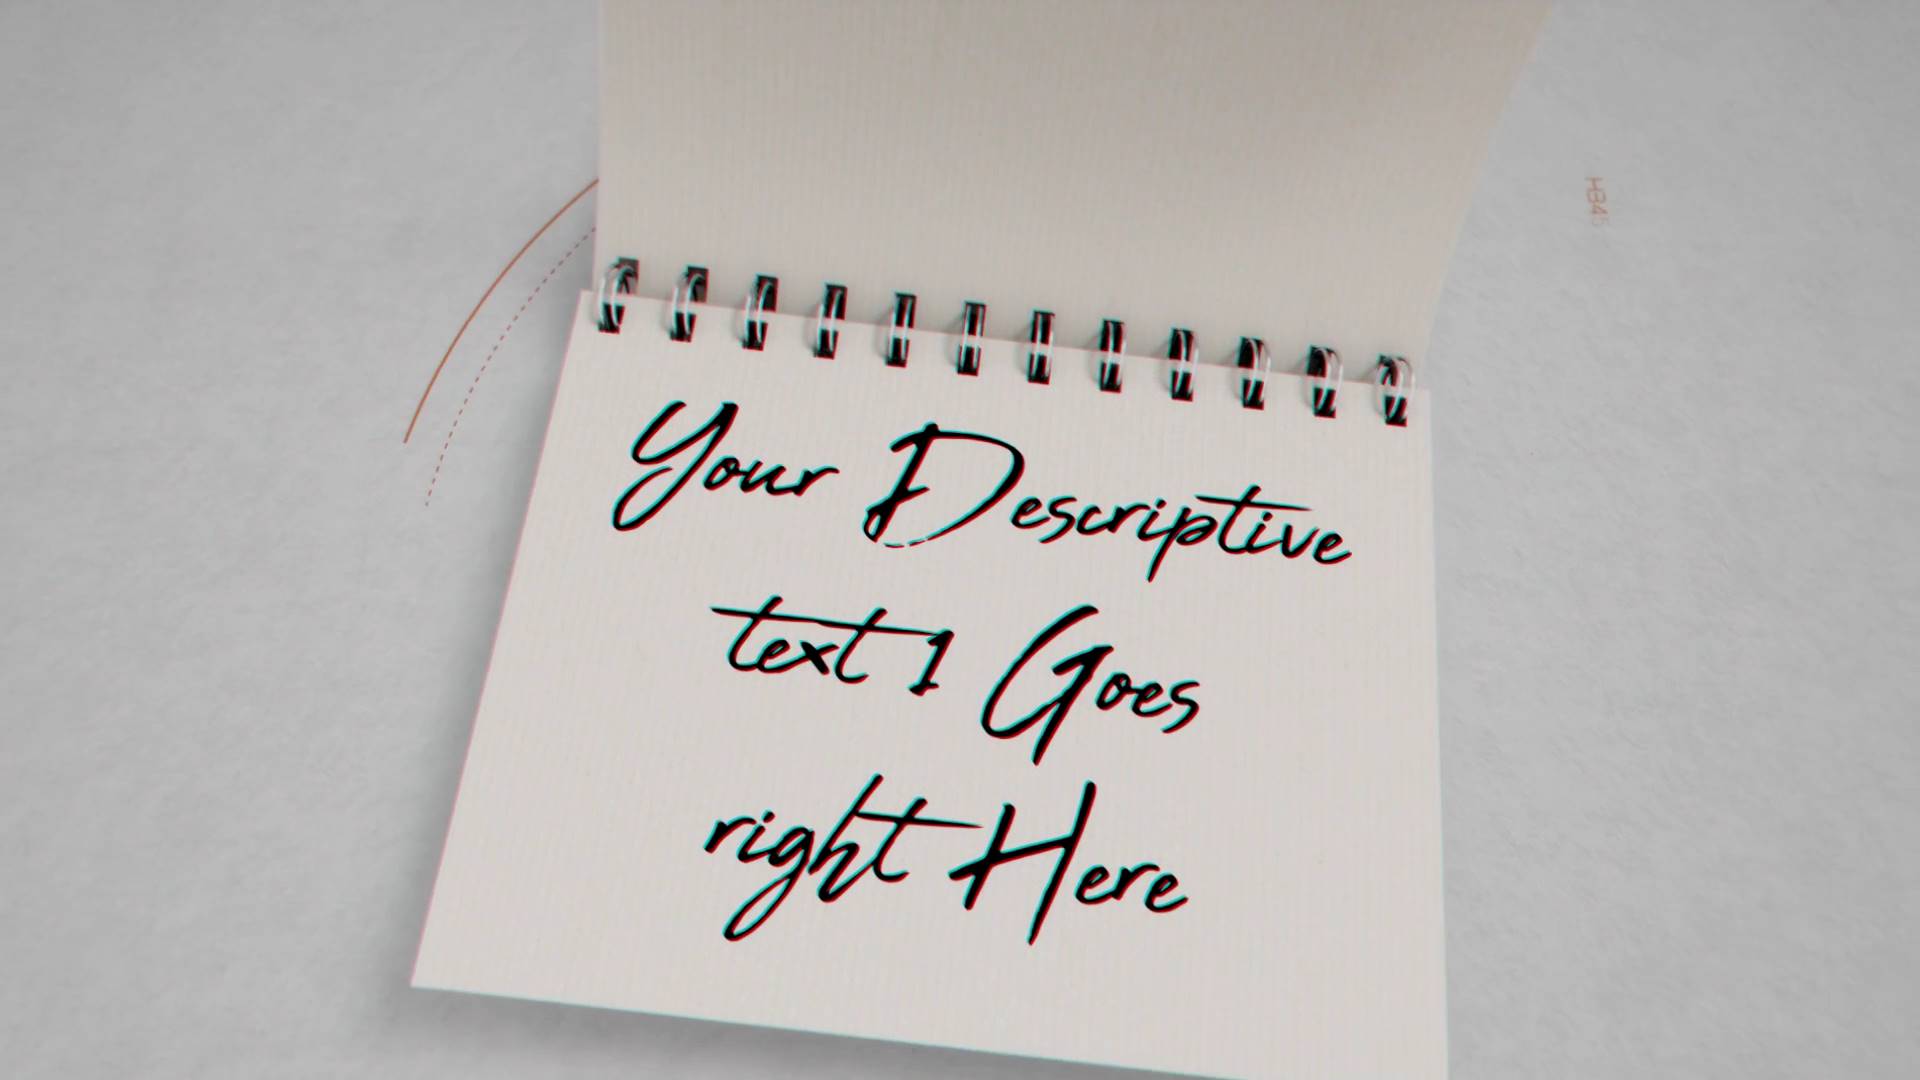 Your Descriptive
text 1 Goes
right Here